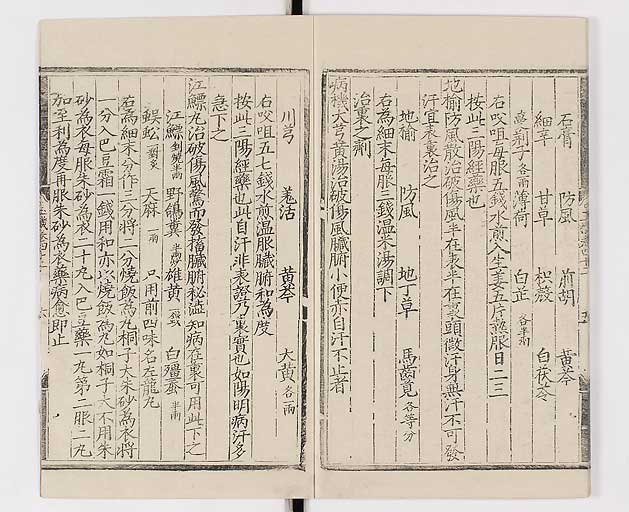 石膏 防風 前胡 黄芩
細辛 甘草 枳殼 白茯苓
蔓荊子各兩 薄荷 白芷各半兩
右㕮咀每服五錢水煎入生姜五片熱服日二三
按此三陽經藥也
地榆防風散治破傷風半在表半在裏頭微汗身無汗不可發
汗宜表裏治之
地榆 防風 地丁草 馬齒莧各等分
右為細末每服三錢温米湯調下
治裏之剤
病機大芎黄湯治破傷風臟腑小便赤自汗不止者
川芎 羗活 黄芩 大黄各一兩
右㕮咀五七錢水煎温服臟腑和為度
按此三陽經藥也此自汗非表證乃裏實也如陽明病汗多
急下之
江鰾丸治破傷風驚而發搐臟腑秘澁知病在裏可用此下之
江鰾剉炒半兩 野鴿糞半兩炒 雄黄一錢 白殭蚕半兩
蜈蚣一對炙 天麻一兩 只用前四味名左龍丸
右為細末分作三分將二分燒飯為丸桐子大朱砂為衣將
一分入巴豆霜一錢用和亦以燒飯為丸如桐子大不用朱
砂為衣每服朱砂為衣二十丸入巴豆藥一丸第二服二丸
加至利為度再服朱砂為衣藥病愈即止